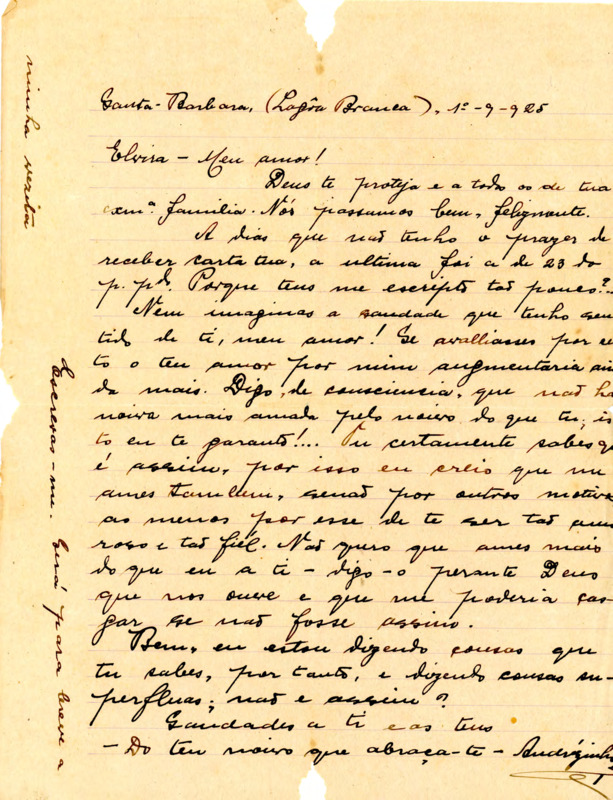 Santa-Barbara, (Lagôa Branca), 1º-9-925
Elvira - Meu amor!
Deus te proteja e a todo os de tua
exmª. familia. Nós passamos bem, felizmente.
A dias que não tenho o prazer de
receber carta tua, a ultima foi a de 23 do
p. pdº. Porque tens me escripto tão pouco?..
Nem imaginas a saudade que tenho sen
tido de ti, meu amor! Se avalliasses por es
to o teu amor por mim augmentaria ain
da mais. Digo, de consciencia, que não ha
noiva mais amada pelo noivo do que tu; is
to eu te garanto!... Tu certamente sabes q
é assim, por isso eu creio que me
ames tambem, senão por outros motivos
ao menos por esse de te ser tão amo
roso e tão fiel. Não quero que ames mais
do que eu a ti - digo-o perante Deus
que nos ouve e que me poderia cas-
gar se não fosse assim.
Bem, eu estou dizendo cousas que
tu sabes, por tanto, e dizendo cousas su-
perfluas; não e assim?
Saudades a ti e aos teus
- Do teu noivo que abraça-te - Andrézinho
Escrevas-me. Será para breve a
minha visita